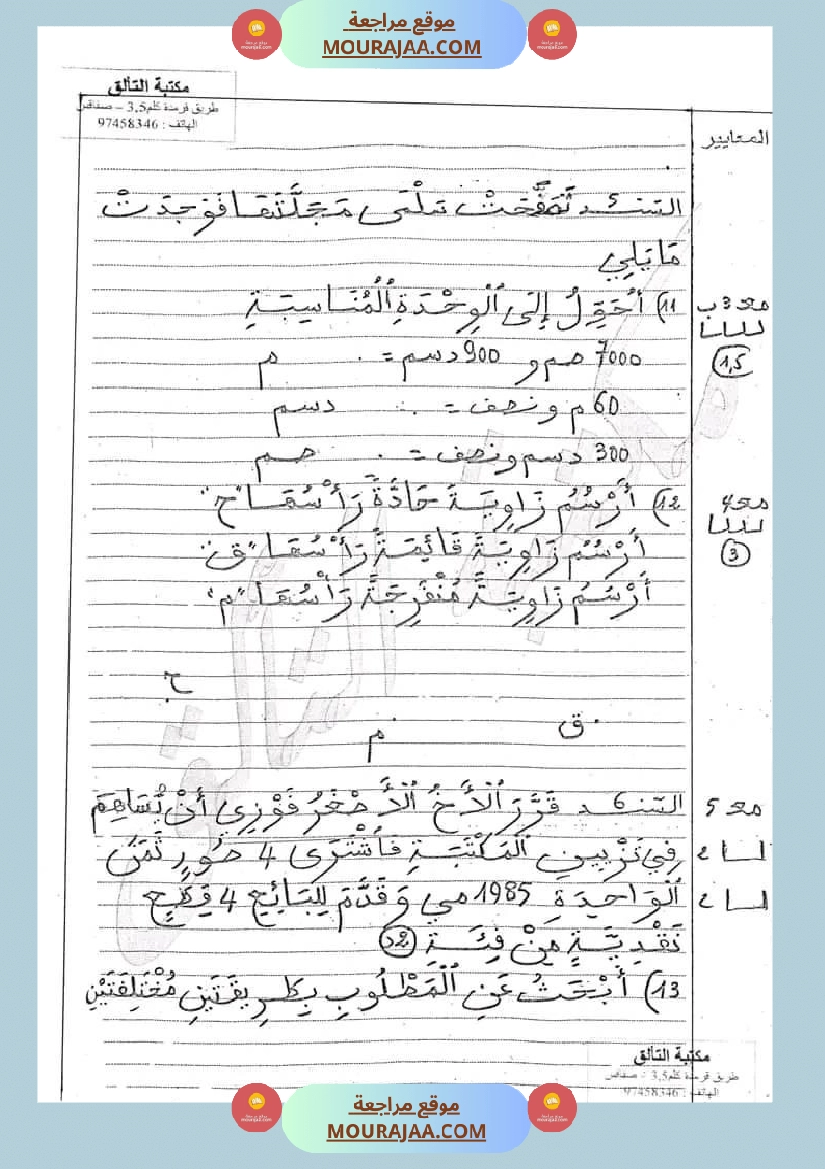 موقع مراجعة
MOURAJAA.COM
مكتبة التألق
طريق قرمدة كلم3,5 – صفاقس
الهاتف : 97458346
المعايير
السّند5 تَصَفَّحَتْ سَلْمَى مَجَلَّتَهَا فَوَجَدَتْ
مَا يَلِي
مع 3 ب
11) أُحَوِّلُ إِلَى ٱلْوِحْدَةِ ٱلْمُنَاسِبَةِ
1,5
7000 صم و 900 دسم = . م
60 م ونصف = . دسم
300 دسم ونصف = . صم
مع 4
12) أَرْسُمُ زَاوِيَةً حَادَّةً رَأْسُهَا "ح"
3
أَرْسُمُ زَاوِيَةً قَائِمَةً رَأْسُهَا "ق"
أَرْسُمُ زَاوِيَةً مُنْفَرِجَةً رَأْسُهَا "م"
ح
ق
م
مع 5
السّند 6 قَرَّرَ ٱلْأَخُ ٱلْأَصْغَرُ فَوْزِي أَنْ يُسَاهِمَ
فِي تَزْيِينِ ٱلْمَكْتَبَةِ فَٱشْتَرَى 4 صُوَرٍ ثَمَنُ
ٱلْوَاحِدَةِ 1985 مي وَقَدَّمَ لِلْبَائِعِ 4 قِطَعٍ
نَقْدِيَّةٍ مِنْ فِئَةِ 2د
13) أَبْحَثُ عَنِ ٱلْمَطْلُوبِ بِطَرِيقَتَيْنِ مُخْتَلِفَتَيْنِ
مكتبة التألق
طريق قرمدة كلم3,5 – صفاقس
الهاتف : 97458346
موقع مراجعة
MOURAJAA.COM